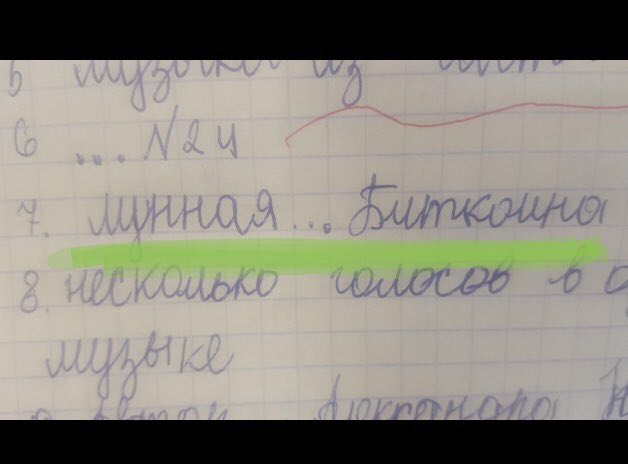 5 музыка из
6 ... N2 Ц
7. лунная... Биткоина
8. несколько голосов в
музыке